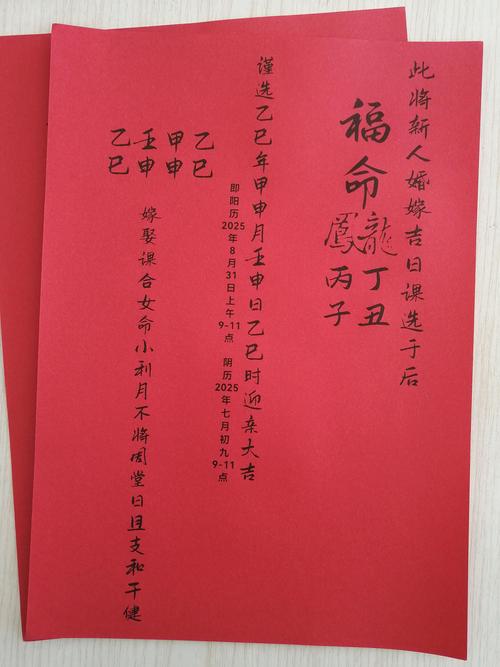 此将新人婚嫁吉日课选于后
福命
龍丁丑
鳳丙子
谨选乙巳年甲申月壬申日乙巳时迎亲大吉
即阳历2025年8月31日上午9-11点 阴历2025年七月初九9-11点
乙巳
甲申
壬申
乙巳
嫁娶课合女命小利月不将周堂日且支和干健